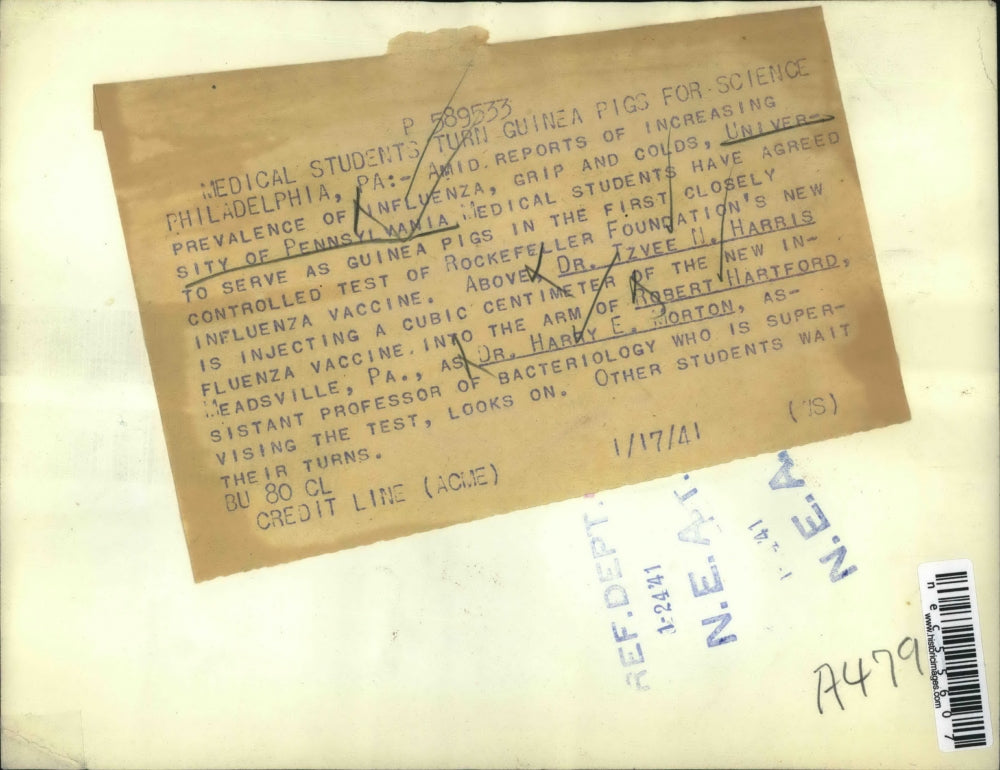 P 589533
MEDICAL STUDENTS TURN GUINEA PIGS FOR SCIENCE
PHILADELPHIA, PA:- AMID REPORTS OF INCREASING
PREVALENCE OF INFLUENZA, GRIP AND COLDS, UNIVER-
SITY OF PENNSYLVANIA MEDICAL STUDENTS HAVE AGREED
TO SERVE AS GUINEA PIGS IN THE FIRST CLOSELY
CONTROLLED TEST OF ROCKEFELLER FOUNDATION'S NEW
INFLUENZA VACCINE. ABOVE, DR. TZVEE N. HARRIS
IS INJECTING A CUBIC CENTIMETER OF THE NEW IN-
FLUENZA VACCINE INTO THE ARM OF ROBERT HARTFORD,
MEADSVILLE, PA., AS DR. HARRY E. MORTON, AS-
SISTANT PROFESSOR OF BACTERIOLOGY WHO IS SUPER-
VISING THE TEST, LOOKS ON. OTHER STUDENTS WAIT
THEIR TURNS.
BU 80 CL 1/17/41 (JS)
CREDIT LINE (ACME)
REF. DEPT.
1-24-41
N.E.A.
N.E.A.
A479
www.historicimages.com
nec55607